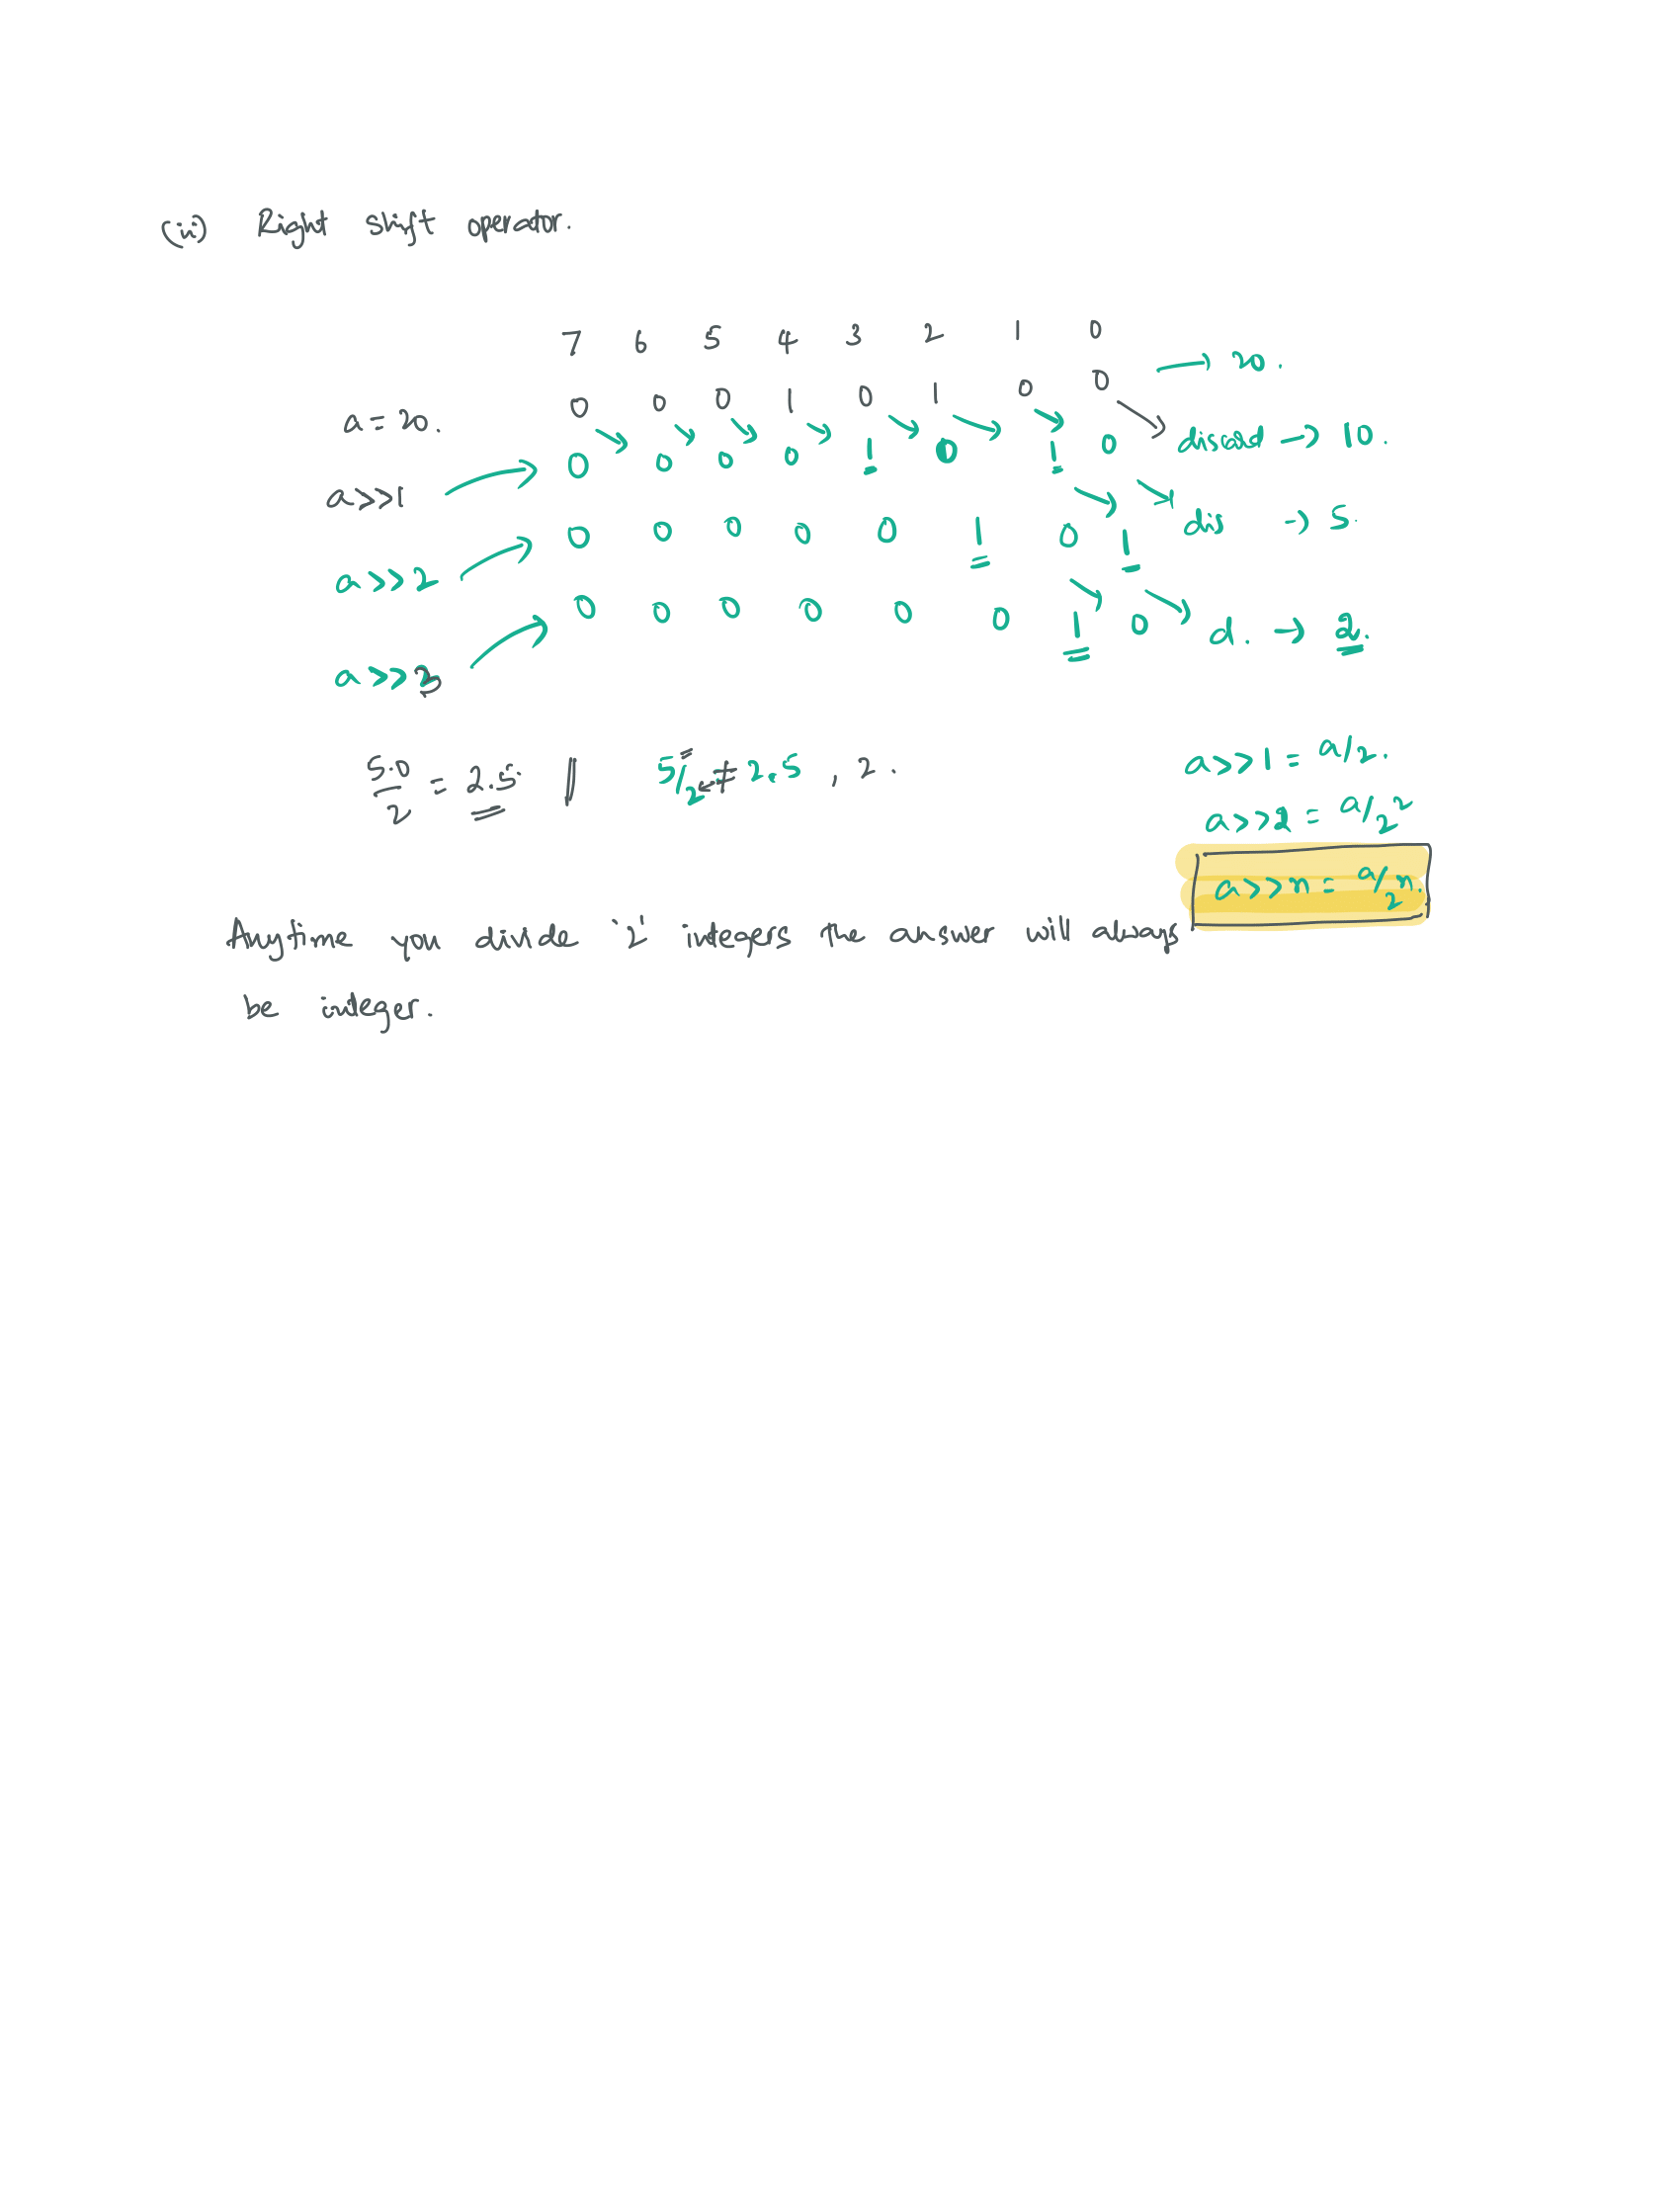 (ii) Right shift operator.
7 6 5 4 3 2 1 0
a = 20. 0 0 0 1 0 1 0 0 → 20.
a>>1 → 0 0 0 0 1 0 1 0 discard → 10.
a>>2 → 0 0 0 0 0 1 0 1 dis → 5.
a>>3 → 0 0 0 0 0 0 1 0 d. → 2.
5.0/2 = 2.5 || 5/2 ≠ 2.5, 2.
a>>1 = a/2.
a>>2 = a/2²
a>>n = a/2ⁿ.
Anytime you divide '2' integers the answer will always
be integer.